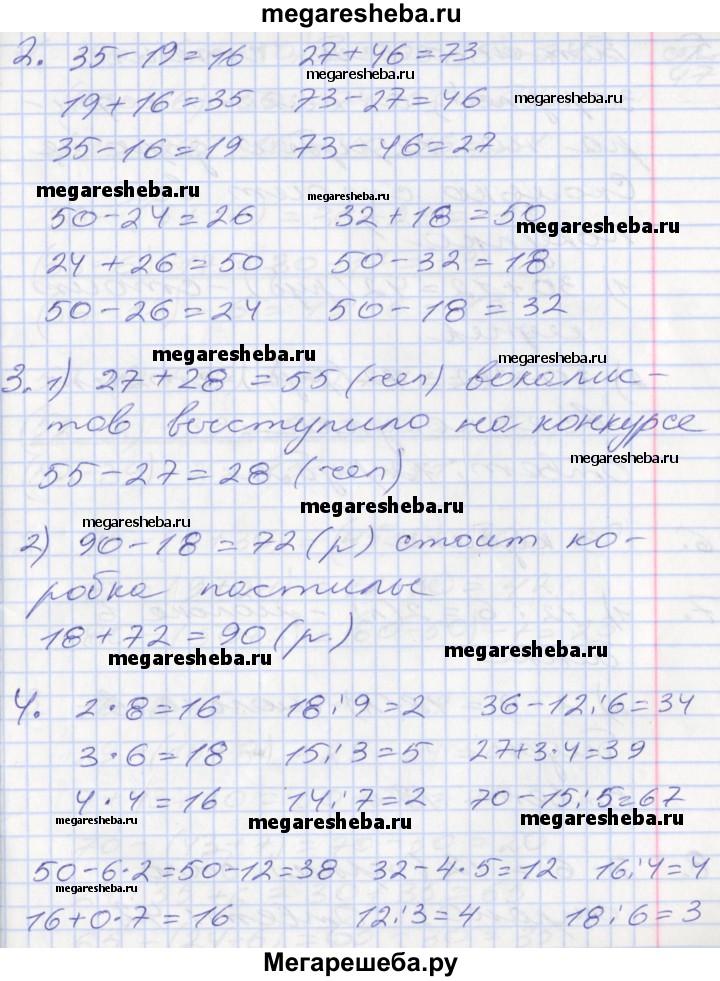 megaresheba.ru
2. 35-19=16 27+46=73
megaresheba.ru
19+16=35 73-27=46 megaresheba.ru
35-16=19 73-46=27
megaresheba.ru megaresheba.ru
50-24=26 32+18=50
megaresheba.ru
24+26=50 50-32=18
50-26=24 50-18=32
megaresheba.ru megaresheba.ru
3. 1) 27+28=55 (чел) вокалис-
тов выступило на конкурсе
megaresheba.ru
55-27=28 (чел)
megaresheba.ru
megaresheba.ru
2) 90-18=72 (р) стоит ко-
робка пастилы
18+72=90 (р.)
megaresheba.ru megaresheba.ru
4. 2·8=16 18:9=2 36-12:6=34
3·6=18 15:3=5 27+3·4=39
4·4=16 14:7=2 70-15:5=67
megaresheba.ru megaresheba.ru megaresheba.ru
50-6·2=50-12=38 32-4·5=12 16:4=4
megaresheba.ru
16+0·7=16 12:3=4 18:6=3
Мегарешеба.ру